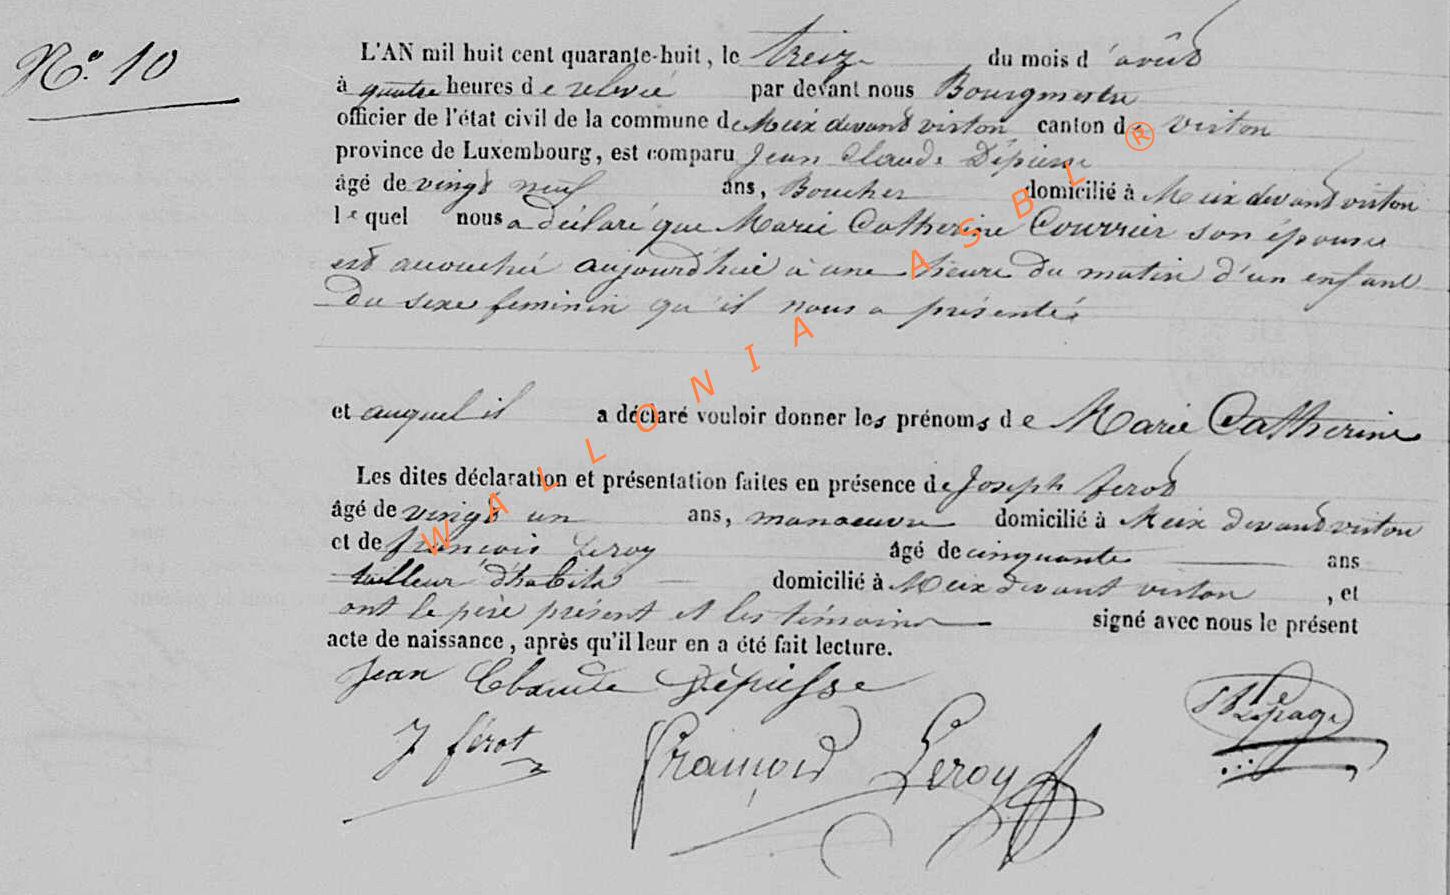 N.° 10
L'AN mil huit cent quarante-huit, le treize du mois d'août
à quatre heures de relevée par devant nous Bourgmestre
officier de l'état civil de la commune de Meix devant virton canton de Virton
province de Luxembourg, est comparu Jean Claude Dépiesse
âgé de vingt neuf ans, Boucher domicilié à Meix devant virton
lequel nous a déclaré que Marie Catherine Courrier son épouse
est accouchée aujourd'hui à une heure du matin d'un enfant
du sexe feminin qu'il nous a présentés
et auquel il a déclaré vouloir donner les prénoms de Marie Catherine
Les dites déclaration et présentation faites en présence de Joseph ferot
âgé de vingt un ans, manoeuvre domicilié à Meix devant virton
et de françois Leroy âgé de cinquante ans
tailleur d'habits domicilié à Meix devant virton, et
ont le père présent et les témoins signé avec nous le présent
acte de naissance, après qu'il leur en a été fait lecture.
Jean Claude Dépiesse
J ferot François Leroy Lepage
WALLONIA ASBL ®